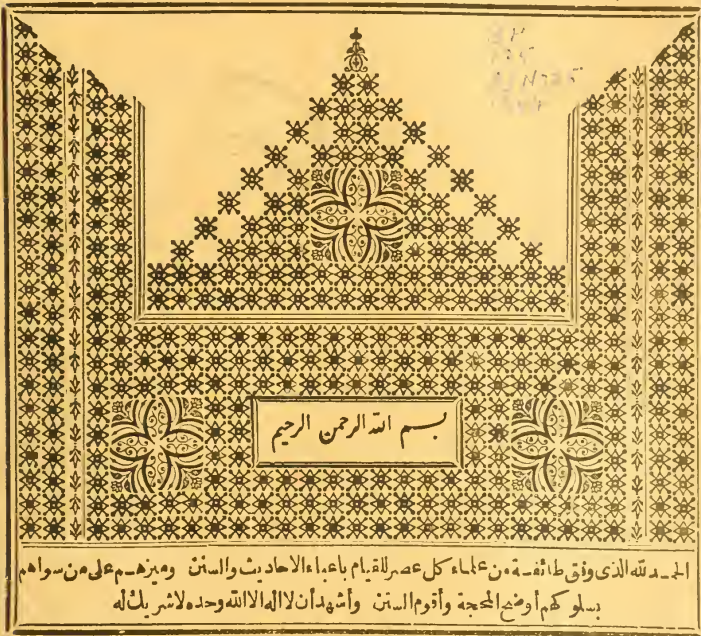 بسم الله الرحمن الرحيم
الحمد لله الذى وفق طائفة من علماء كل عصر للقيام باعباء الاحاديث والسنن وميزهم على من سواهم
بسلوكهم أوضح المحجة وأقوم السنن وأشهد أن لا اله الا الله وحده لا شريك له